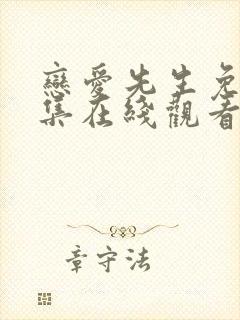 戀愛先生免
集在綫觀看
章守法